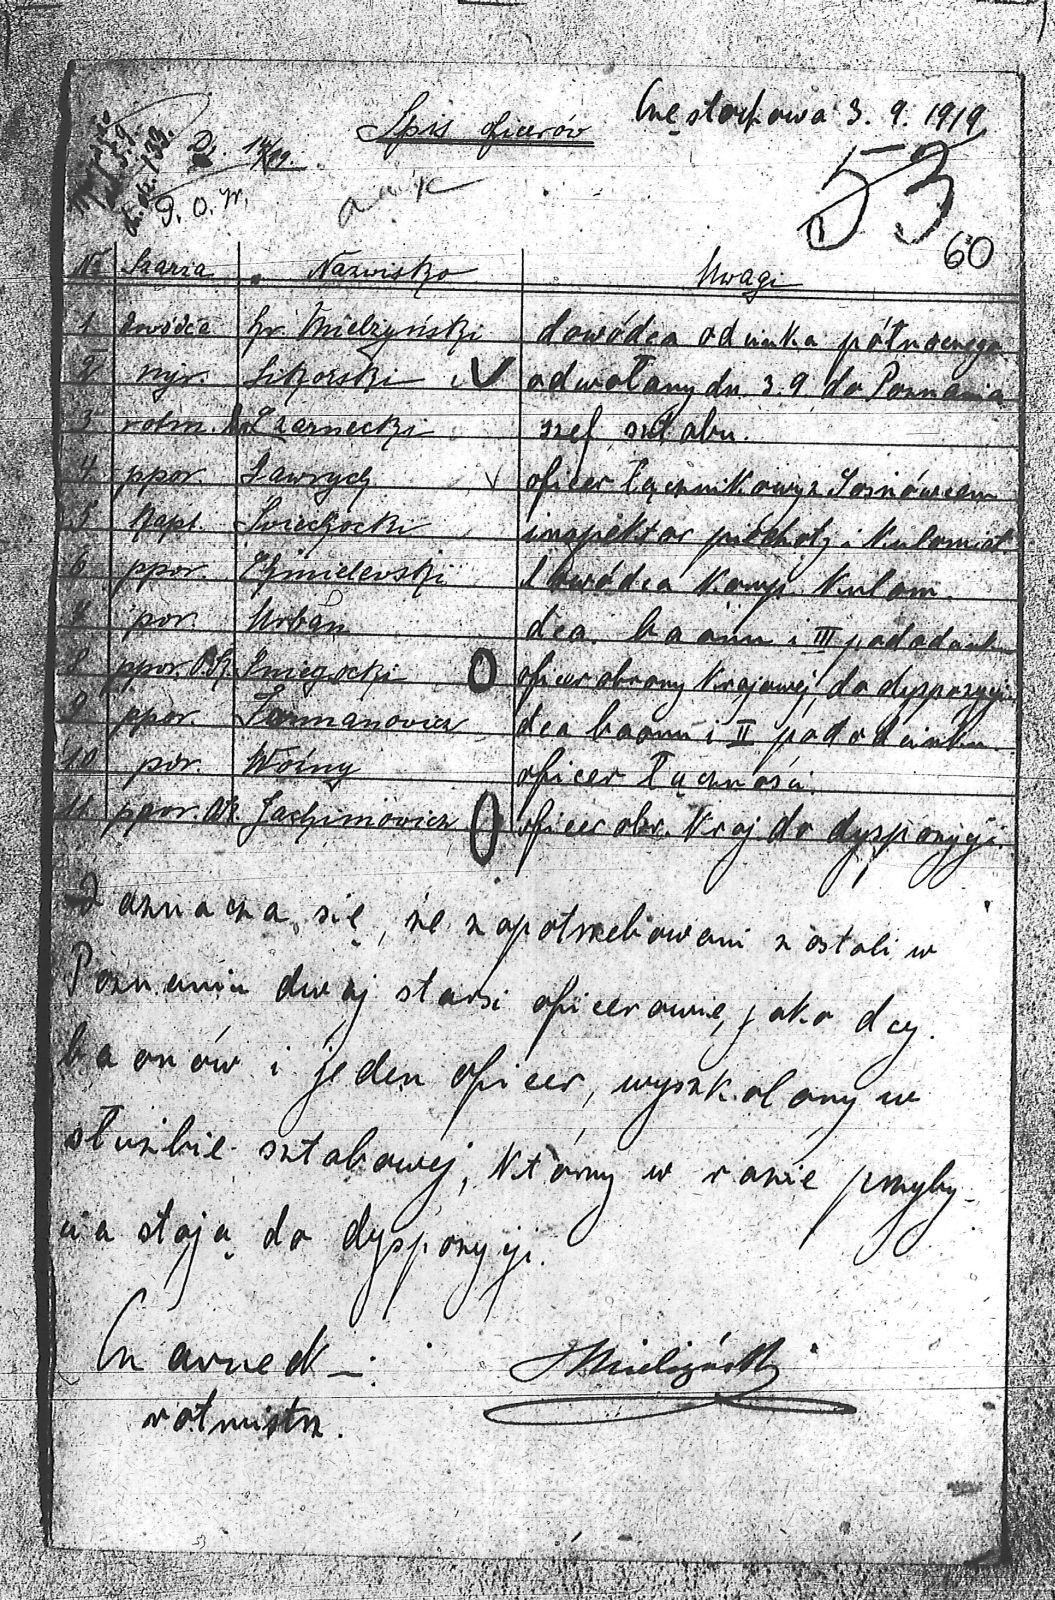 Częstochowa 3. 9. 1919
Spis oficerów
P. O. W.
53
60
No Szarża Nazwisko Uwagi
1 dowódca hr. Mielżyński dowódca odcinka północnego
2 mjr. Sikorski odwołany dn. 3. 9 do Poznania
3 rotm. Czarnecki szef sztabu.
4 ppor. Ławrycz oficer łącznikowy z Sosnowcem
5 kapt. Świechocki inspektor piechoty i kulomiot
6 ppor. Chmielewski dowódca komp. kulom.
7 por. Urban dca. baonu i III pododcinka
8 ppor. O.K. Śniegocki O oficer obrony krajowej, do dyspozycji
9 ppor. dca baonu i II pododcinku
10 por. Woźny oficer łączności.
11 ppor. O.K. Jachimowicz O oficer obr. kraj do dyspozycji.
Zaznacza się, że zapotrzebowani zostali w
Poznaniu dwaj starsi oficerowie, jako dcy.
baonów i jeden oficer, wyszkolony w
służbie sztabowej, który w razie przyby-
cia stoją do dyspozycji.
Czarnecki
rotmistrz.
Mielżyński
53